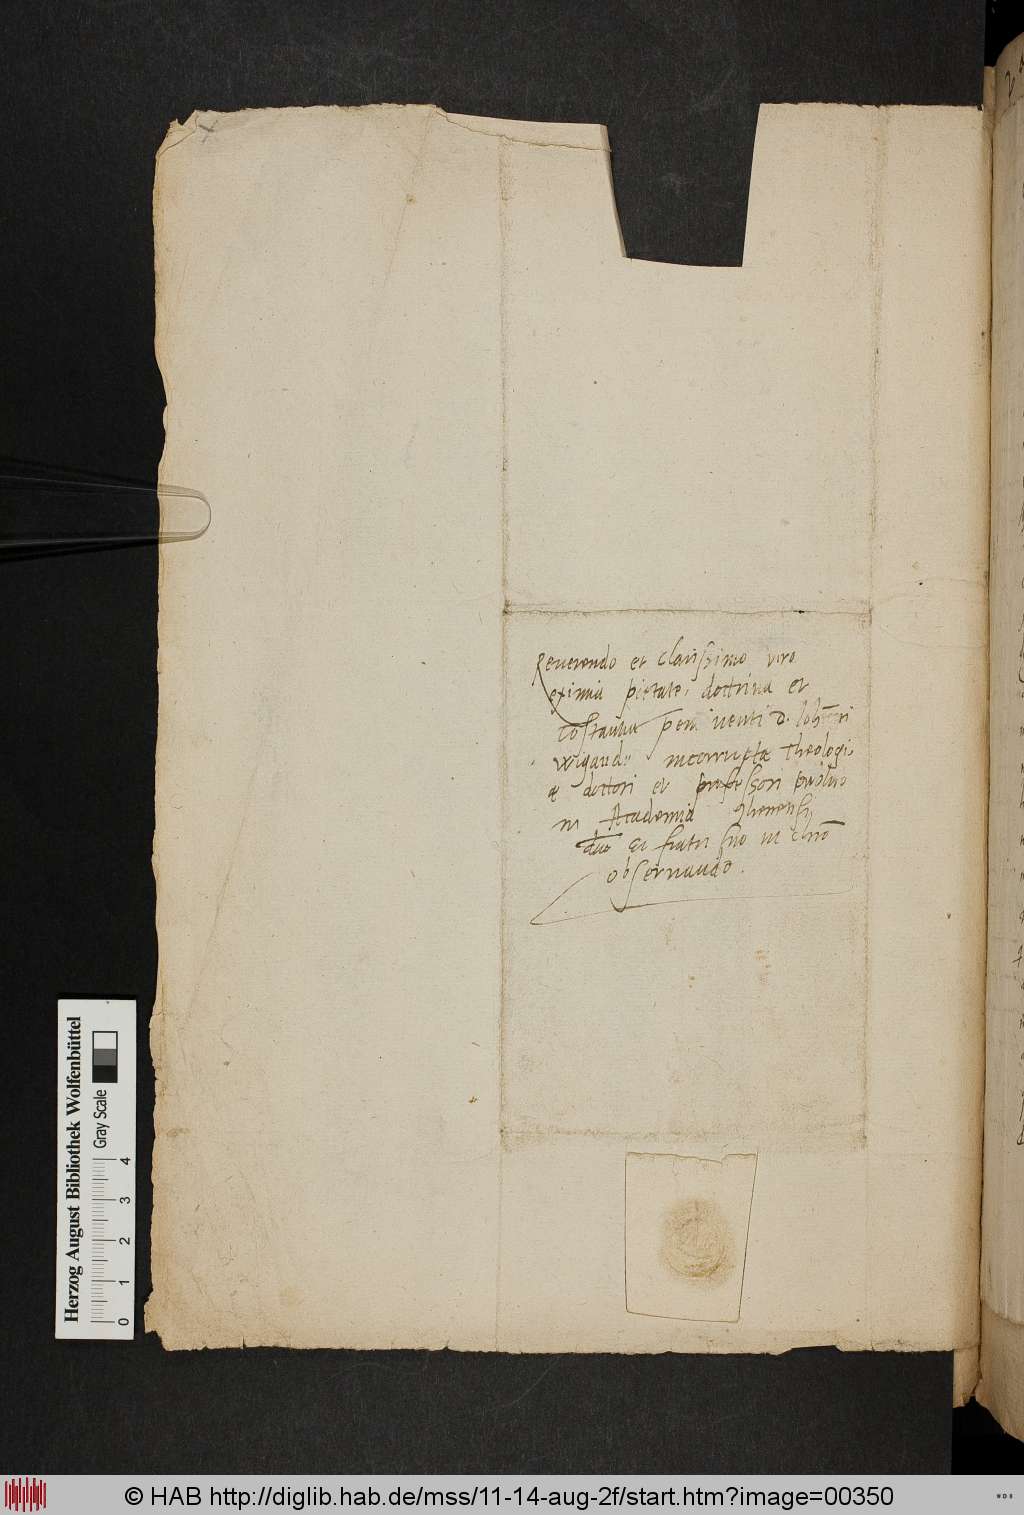 Reverendo et clarissimo viro
eximia pietate, doctrina et
constantia D. Iohanni
Wigando incorruptæ theologi-
æ doctori et professori
in Academia Ihenensi
dno et fratri suo in chro
observando.
Herzog August Bibliothek Wolfenbüttel
Gray Scale
0 1 2 3 4
© HAB http://diglib.hab.de/mss/11-14-aug-2f/start.htm?image=00350